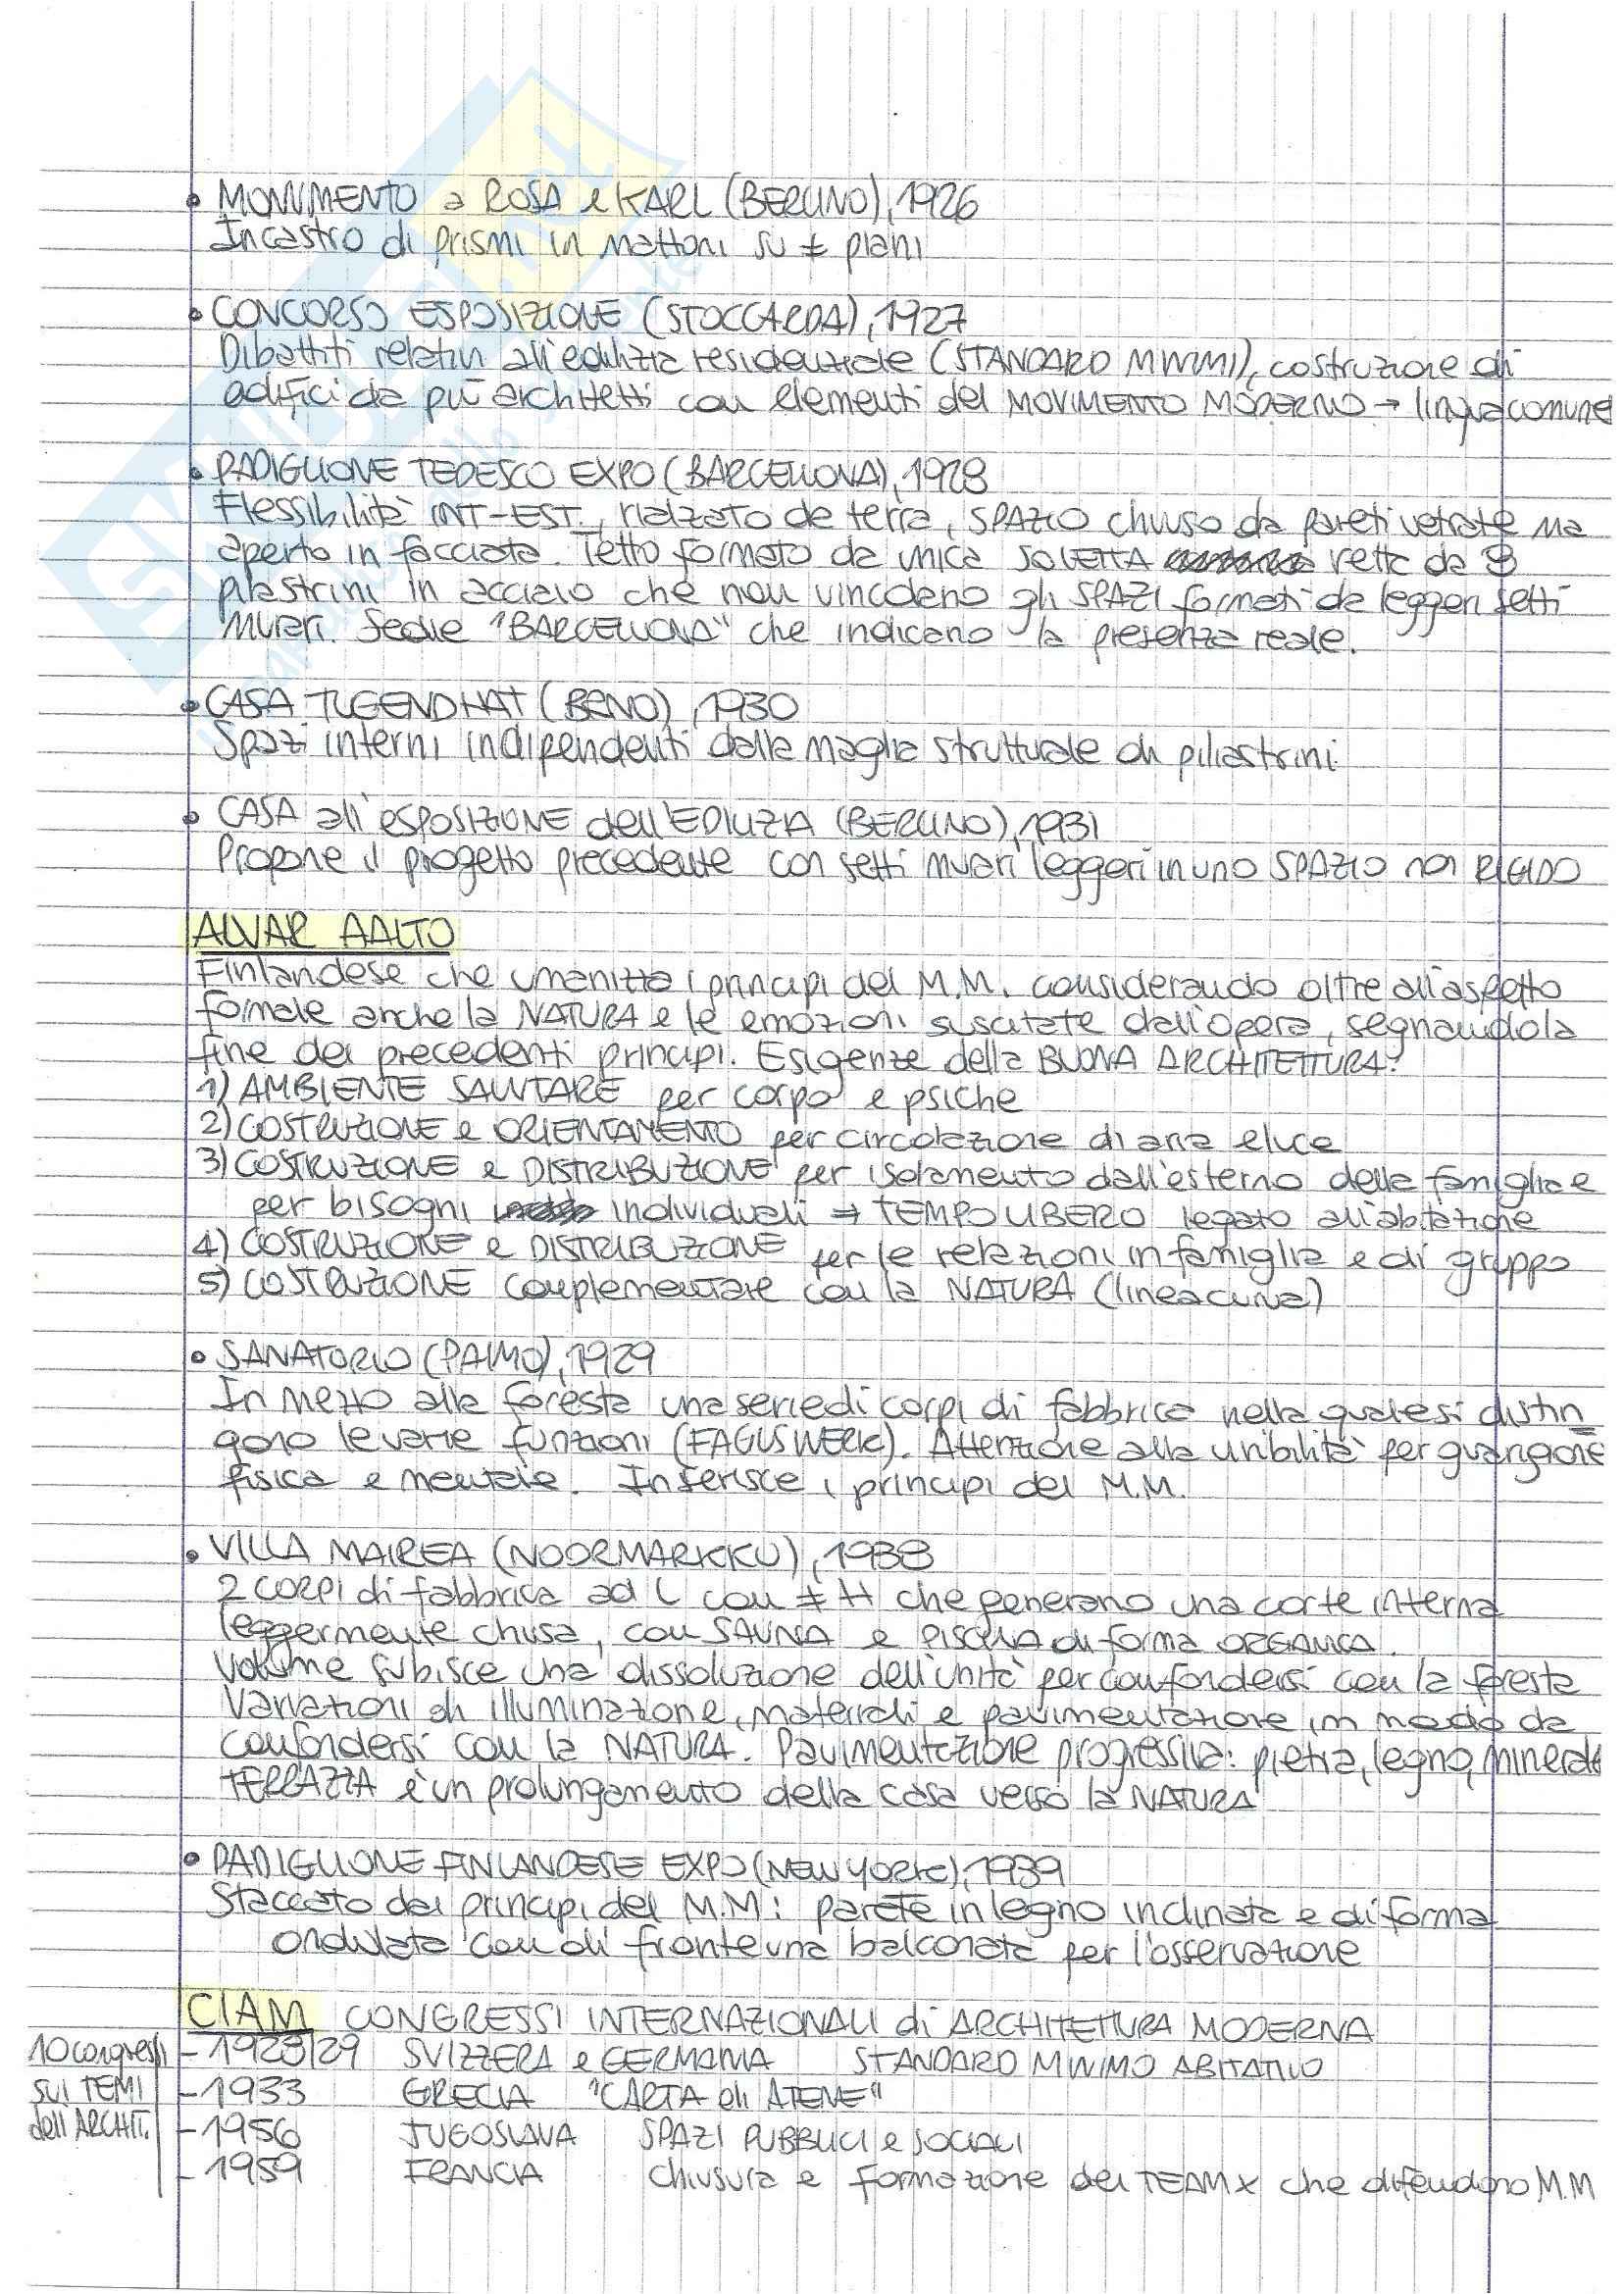 • MONUMENTO a ROSA e KARL (BERLINO), 1926
Incastro di prismi in mattoni su ≠ piani
• CONCORSO ESPOSIZIONE (STOCCARDA), 1927
Dibattiti relativi all'edilizia residenziale (STANDARD MINIMI), costruzione di
edifici da più architetti con elementi del MOVIMENTO MODERNO → lingua comune
• PADIGLIONE TEDESCO EXPO (BARCELLONA), 1928
Flessibilità INT-EST., rialzato da terra, SPAZIO chiuso da pareti vetrate ma
aperto in facciata. Tetto formato da unica SOLETTA retta da 8
pilastrini in acciaio che non vincolano gli SPAZI formati da leggeri setti
murari. Sedie "BARCELLONA" che indicano la presenza reale.
• CASA TUGENDHAT (BRNO), 1930
Spazi interni indipendenti dalla maglia strutturale di piliastrini
• CASA all'ESPOSIZIONE dell'EDILIZIA (BERLINO), 1931
Propone il progetto precedente con setti murari leggeri in uno SPAZIO non RIGIDO
ALVAR AALTO
Finlandese che umanizza i principi del M.M. considerando oltre all'aspetto
formale anche la NATURA e le emozioni suscitate dall'opera, segnando la
fine dei precedenti principi. Esigenze della BUONA ARCHITETTURA:
1) AMBIENTE SALUTARE per corpo e psiche
2) COSTRUZIONE e ORIENTAMENTO per circolazione di aria e luce
3) COSTRUZIONE e DISTRIBUZIONE per isolamento dall'esterno della famiglia e
per bisogni individuali ⇒ TEMPO LIBERO legato all'abitazione
4) COSTRUZIONE e DISTRIBUZIONE per le relazioni in famiglia e di gruppo
5) COSTRUZIONE complementare con la NATURA (linea curva)
• SANATORIO (PAIMO), 1929
In mezzo alla foresta una serie di corpi di fabbrica nella quale si distin
gono le varie funzioni (FAGUSWERK). Attenzione alla vivibilità per guarigione
fisica e mentale. Inserisce i principi del M.M.
• VILLA MAIREA (NOORMARKKU), 1938
2 corpi di fabbrica ad L con ≠ H che generano una corte interna
leggermente chiusa, con SAUNA e PISCINA di forma ORGANICA.
Volume subisce una dissoluzione dell'unità per confondersi con la foresta
Variazioni di illuminazione, materiali e pavimentazione in modo da
confondersi con la NATURA. Pavimentazione progressiva: pietra, legno, minerale
TERRAZZA è un prolungamento della casa verso la NATURA
• PADIGLIONE FINLANDESE EXPO (NEW YORK), 1939
Staccato dai principi del M.M: parete in legno inclinata e di forma
ondulata con di fronte una balconata per l'osservazione
CIAM CONGRESSI INTERNAZIONALI di ARCHITETTURA MODERNA
10 congressi
sui TEMI
dell'ARCHIT.
- 1928/29 SVIZZERA e GERMANIA STANDARD MINIMO ABITATIVO
- 1933 GRECIA "CARTA di ATENE"
- 1956 JUGOSLAVA SPAZI PUBBLICI e SOCIALI
- 1959 FRANCIA chiusura e formazione dei TEAM X che difendono M.M